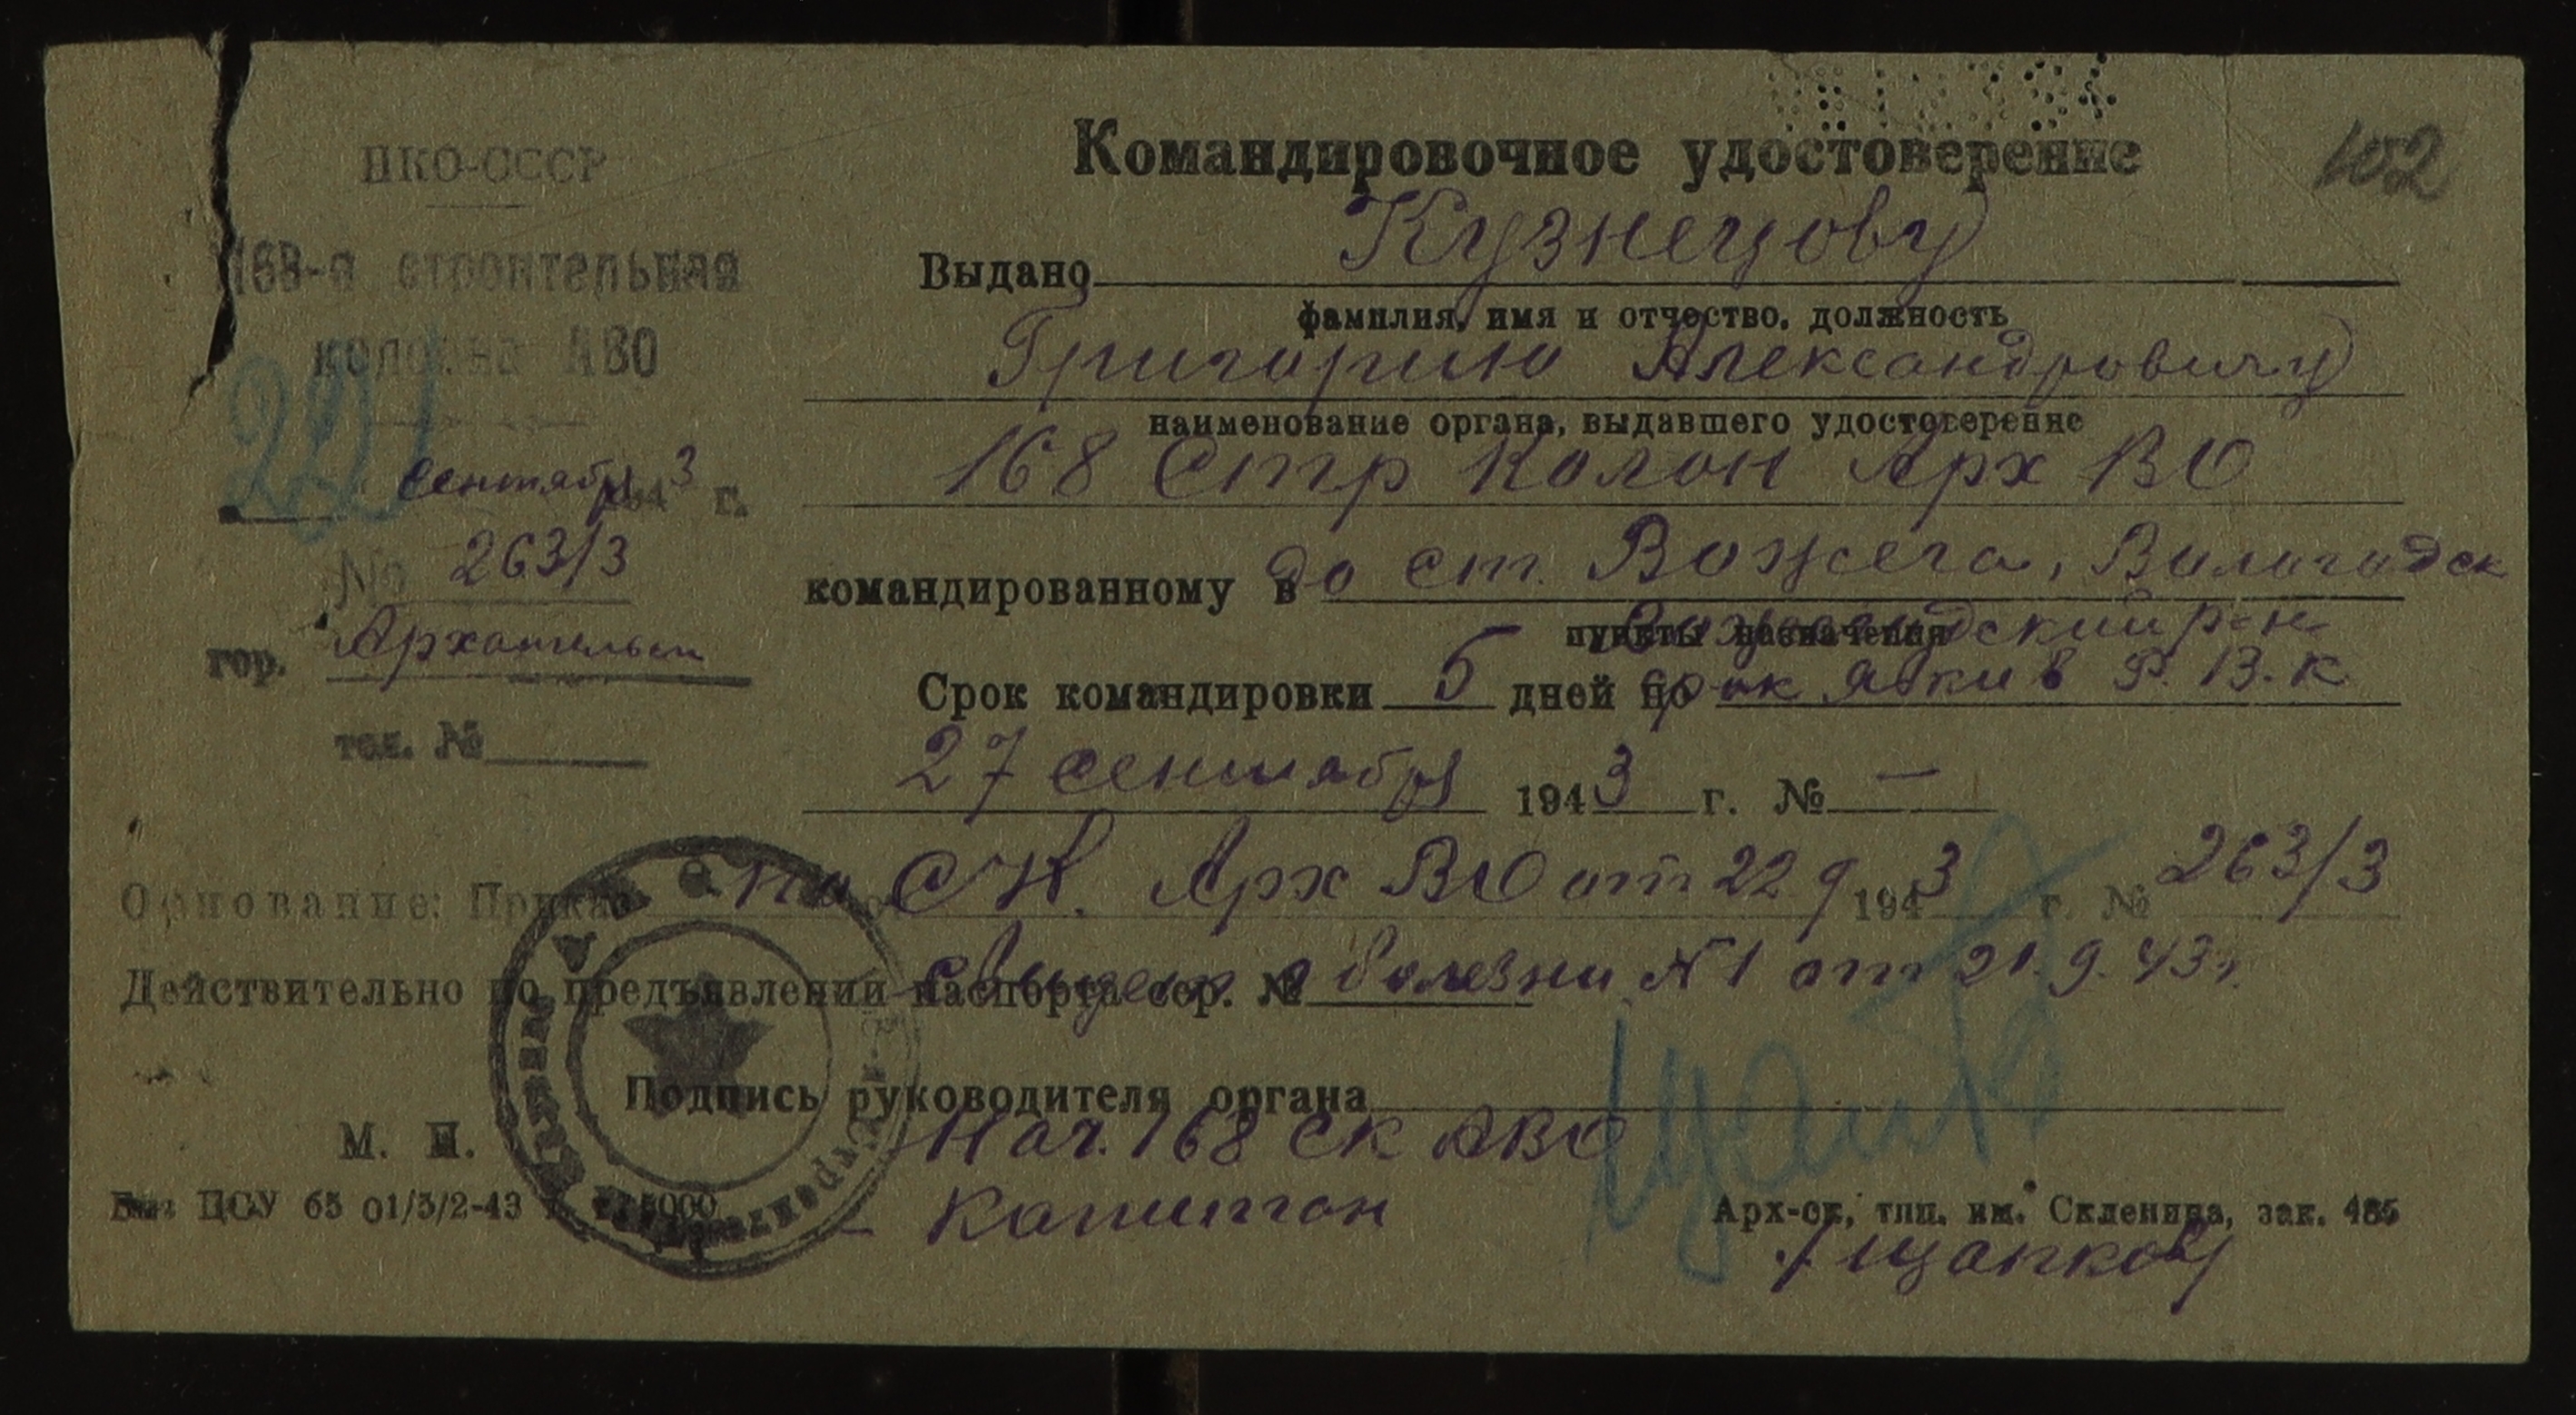 102
НКО-СССР
168-я строительная
колонна АВО
22 сентября 1943 г.
№ 263/3
гор. Архангельск
тел. №
Командировочное удостоверение
Выдано Кузнецову
фамилия, имя и отчество, должность
Григорию Александровичу
наименование органа, выдавшего удостоверение
168 Стр Колон Арх ВО
командированному в до ст. Вожега, Вологодск
пункты назначения
р-н
Срок командировки 5 дней по срок явки в Р.В.К.
27 сентября 1943 г. № —
Основание: Приказ по СК. Арх ВО от 22 9 1943 г. № 263/3
Действительно по предъявлении паспорта сер. №
свидет о болезни N 1 от 21.9.43 г.
Подпись руководителя органа
Нач. 168 СК АВО
М. П.
капитан
ЦСУ 65 01/5/2-43
Арх-ск, тип. им. Склепина, зак. 485
/Щапков/